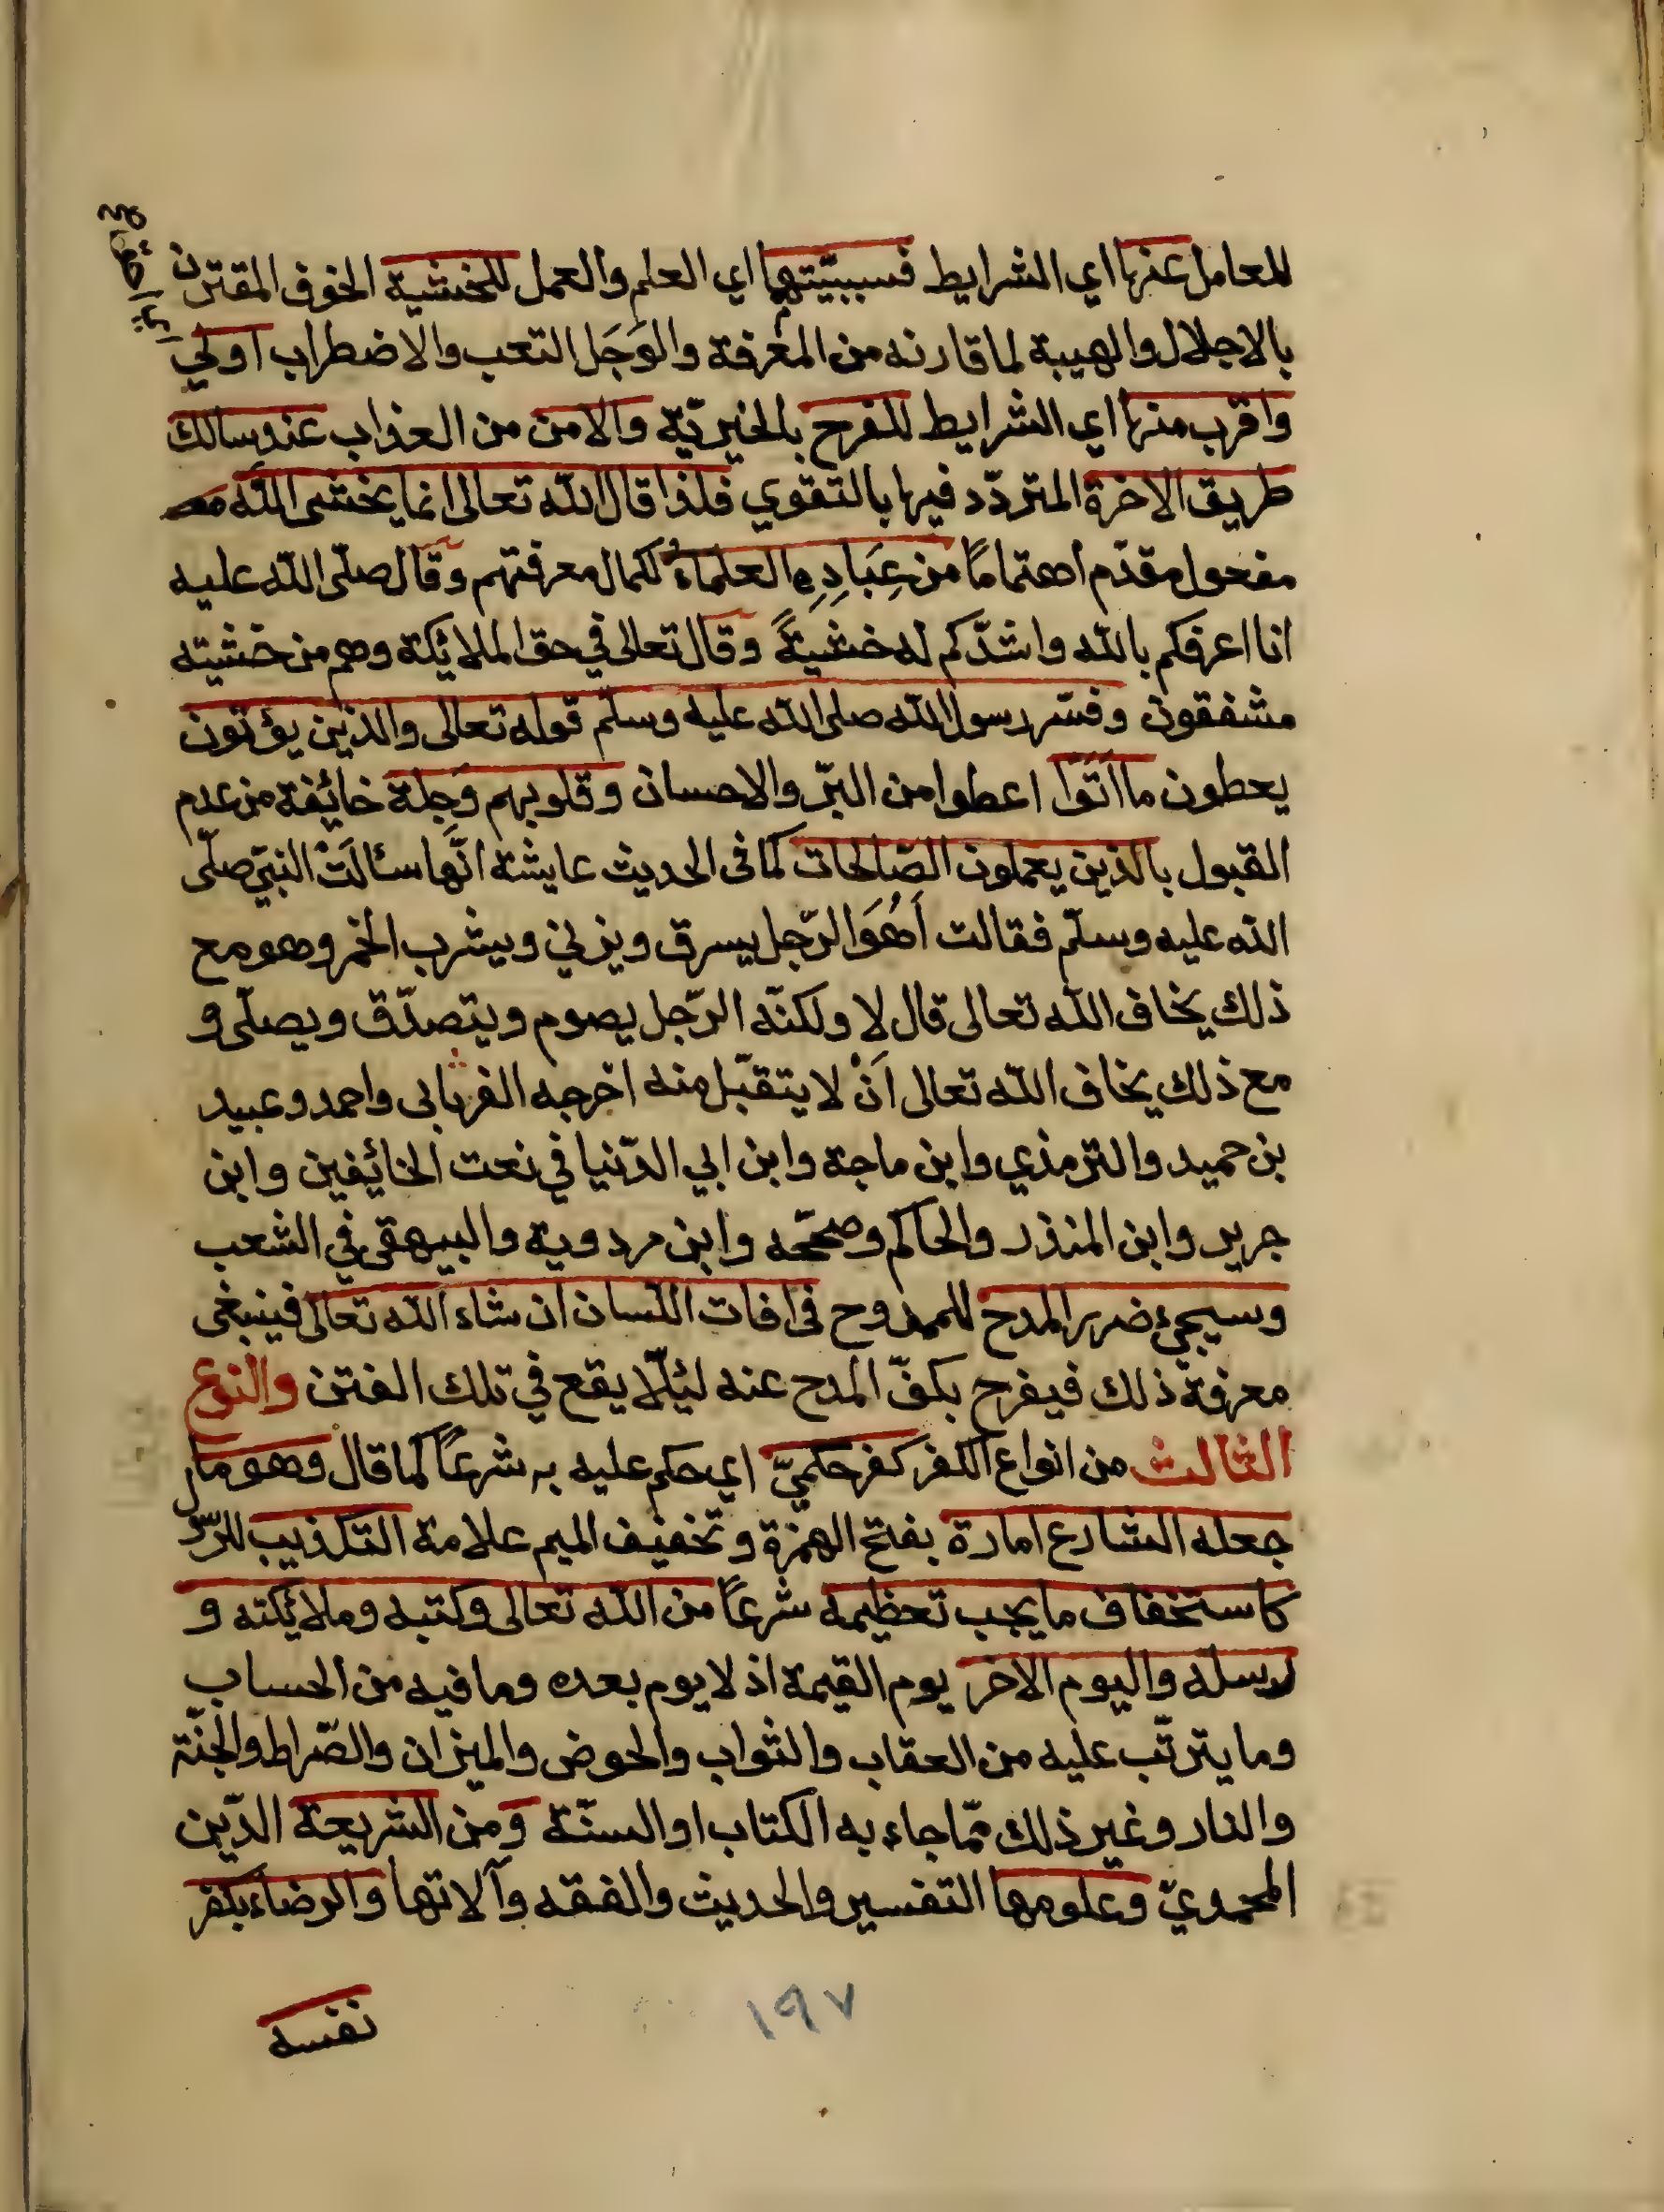 للعامل عنها اي الشرايط فسببيّتهما اي العلم والعمل للخشية الخوف المقترن
بالاجلال والهيبة لما قارنه من المعرفة والوَجَل التعب والاضطراب اولي
واقرب منها اي الشرايط للفرح بالخيريّة والامن من العذاب عند سالك
طريق الاخرة المتردّد فيها بالتقوي فلذا قال الله تعالى انما يخشى الله
مفعول مقدّم اهتمامًا من عِبَادِهِ العلماءُ لكمال معرفتهم وقال صلّى الله عليه
انا اعرفكم بالله واشدّكم له خشيةً وقال تعالى في حق الملائكة وهم من خشيته
مشفقون وفسّر رسول الله صلى الله عليه وسلّم قوله تعالى والذين يؤتون
يعطون ما اَتَوْا اعطوا من البرّ والاحسان وقلوبهم وَجِلَة خائفة من عدم
القبول بالذين يعملون الصّالحات كما في الحديث عايشة انّها سئالَتْ النبيّ صلّى
الله عليه وسلّم فقالت اَهُوَ الرّجل يسرق ويزني ويشرب الخمر وهو مع
ذلك يخاف الله تعالى قال لا ولكنّه الرّجل يصوم ويتصدّق ويصلّى و
مع ذلك يخاف الله تعالى اَنْ لا يتقبّل منه اخرجه الفريابى واحمد وعبيد
بن حميد والترمذي وابن ماجة وابن ابي الدّنيا في نعت الخائفين وابن
جرير وابن المنذر والحاكم وصحّحه وابن مردوية والبيهقى في الشعب
وسيجيء ضرر المدح للممدوح فى افات اللسان ان شاء الله تعالى فينبغى
معرفة ذلك فيفرح بكفّ المدح عنه لئلّا يقع في تلك الفتن والنوع
الثالث من انواع الكفر كفر حكميّ اي حكم عليه به شرعًا كما قال وهو ما
جعله الشارع امارة بفتح الهمزة وتخفيف الميم علامة التكذيب للرّدّ
كاستخفاف ما يجب تعظيمه شرعًا من الله تعالى وكتبه وملائكته و
رسله واليوم الاخر يوم القيمة اذ لا يوم بعده وما فيه من الحساب
وما يترتّب عليه من العقاب والثواب والحوض والميزان والصّراط والجنّة
والنار وغير ذلك ممّا جاء به الكتاب او السنّة ومن الشريعة الدّين
المحمديّ وعلومها التفسير والحديث والفقه وآلاتها والرضاء بكفر
نفسه
١٩٧